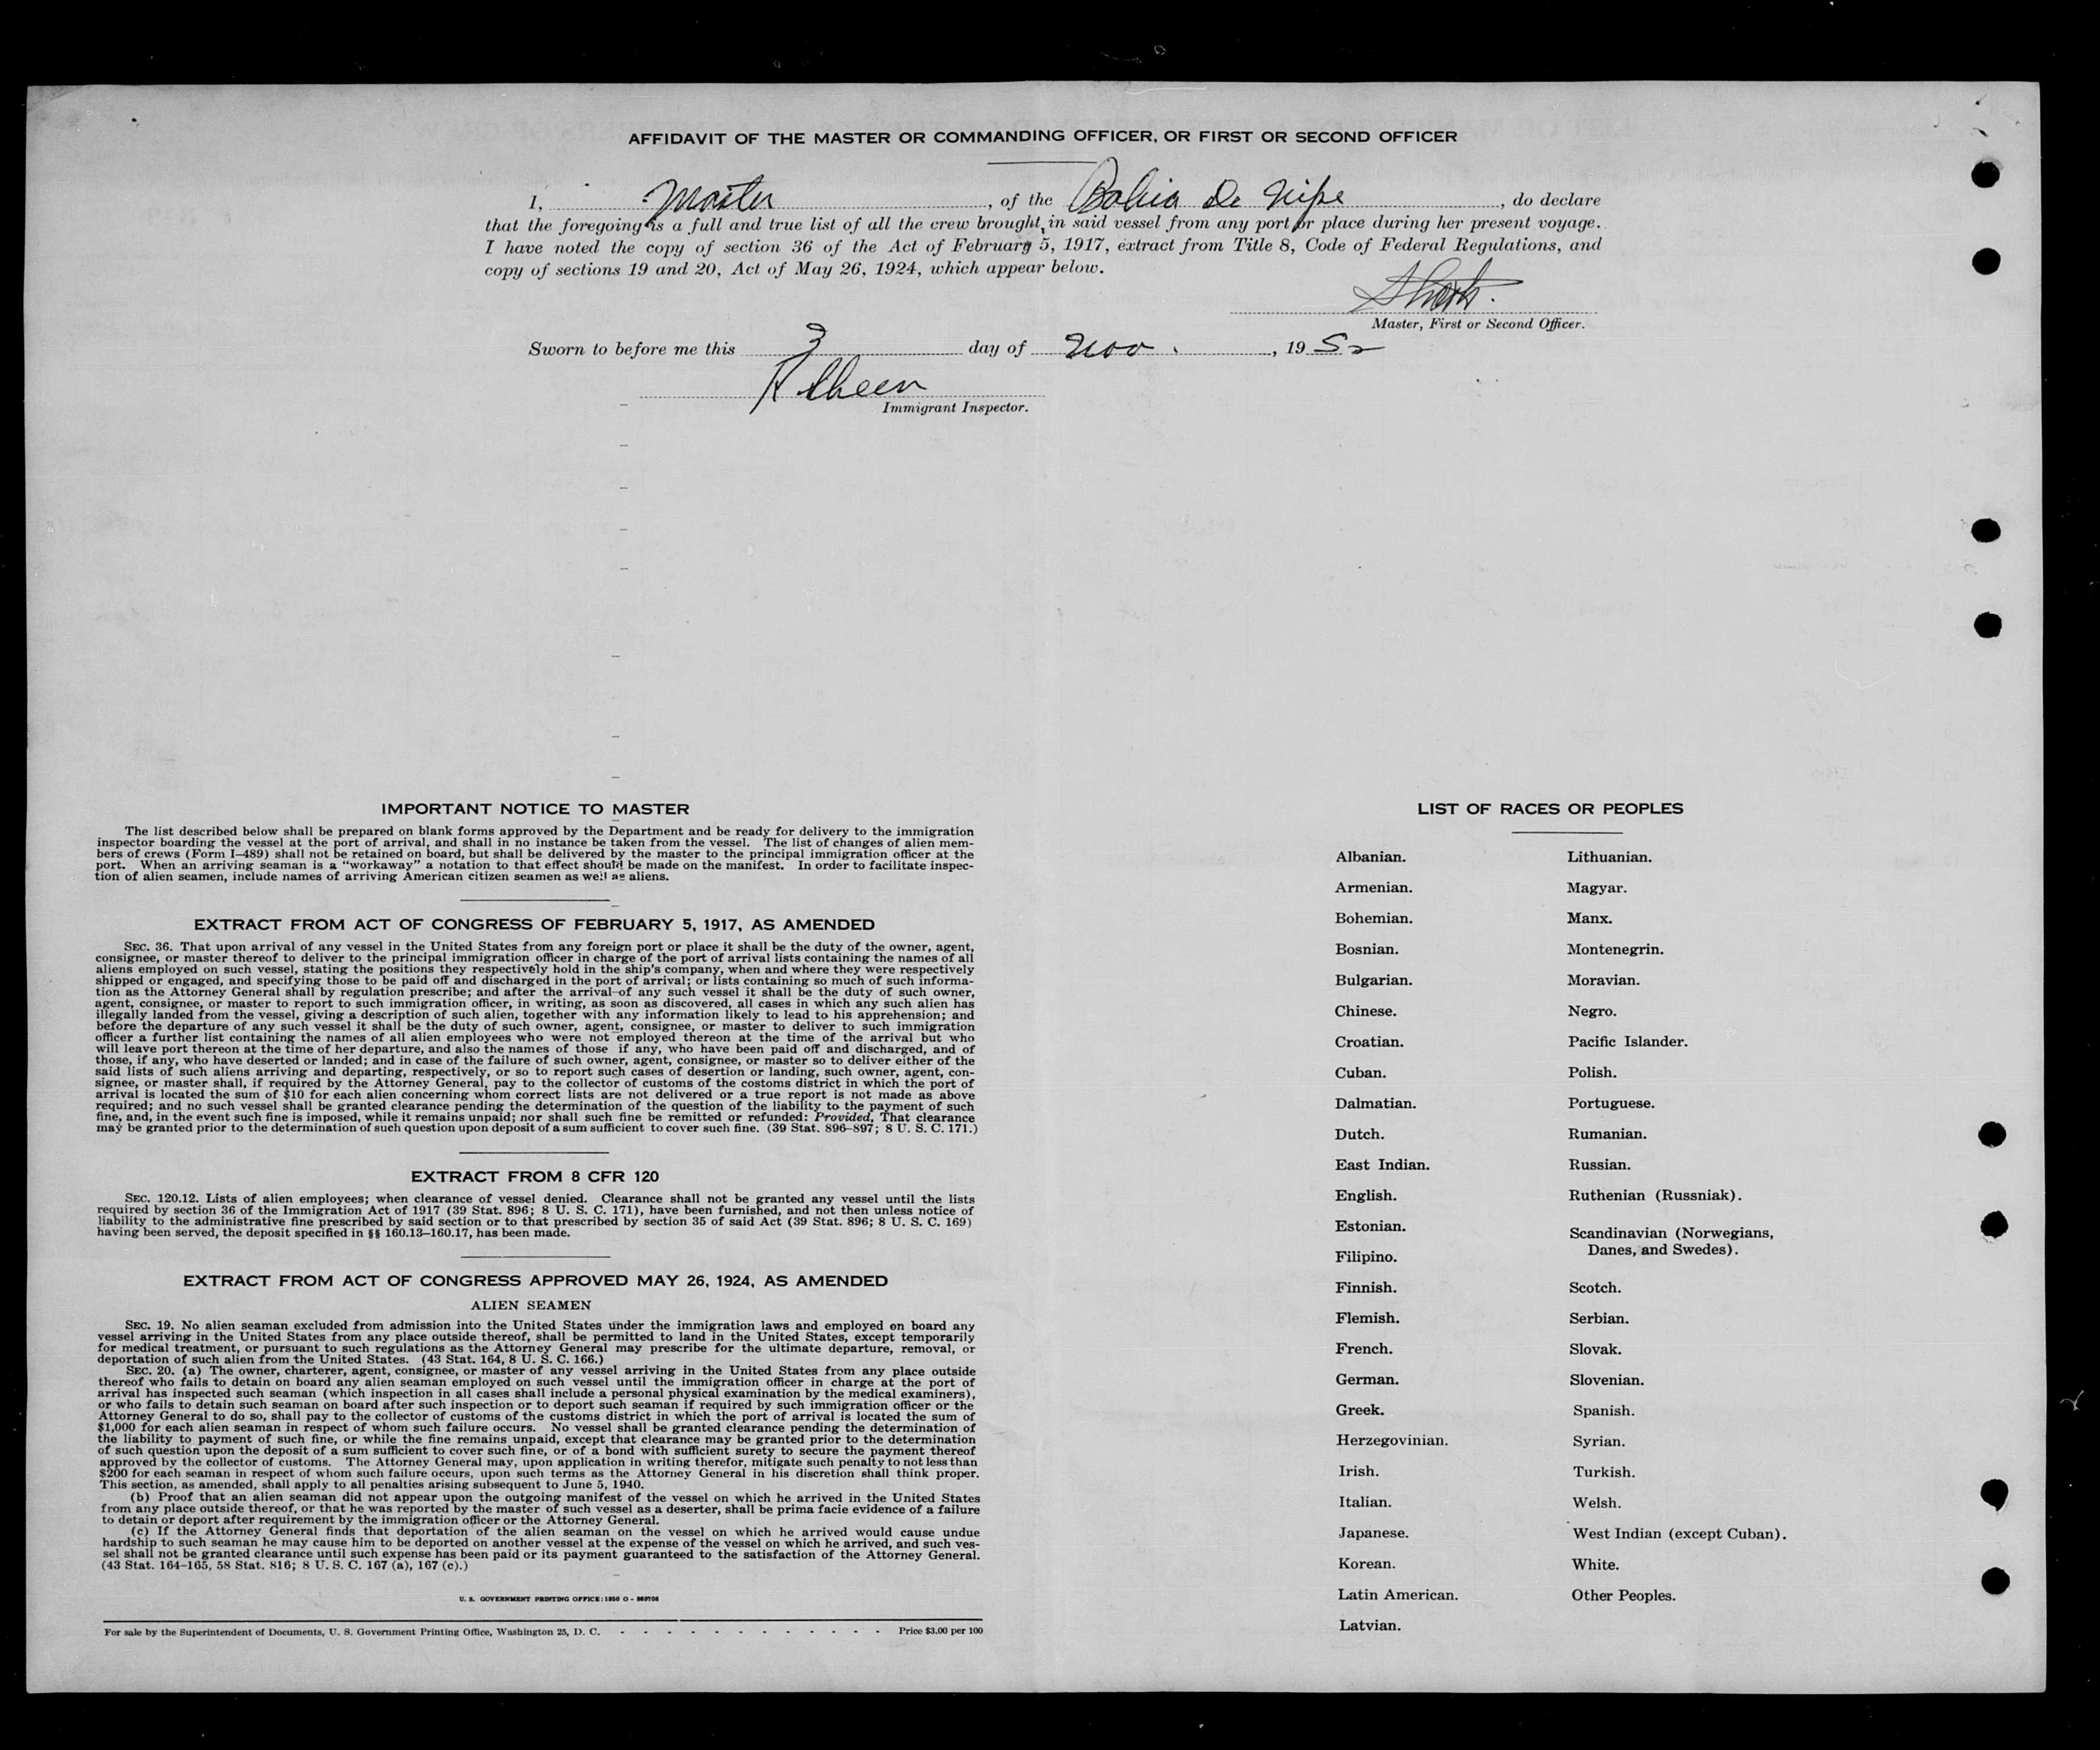 AFFIDAVIT OF THE MASTER OR COMMANDING OFFICER, OR FIRST OR SECOND OFFICER
I, Master, of the Bahia De Nipe, do declare
that the foregoing is a full and true list of all the crew brought in said vessel from any port or place during her present voyage.
I have noted the copy of section 36 of the Act of February 5, 1917, extract from Title 8, Code of Federal Regulations, and
copy of sections 19 and 20, Act of May 26, 1924, which appear below.
Master, First or Second Officer.
Sworn to before me this 3 day of Nov., 1952
Immigrant Inspector.
IMPORTANT NOTICE TO MASTER
The list described below shall be prepared on blank forms approved by the Department and be ready for delivery to the immigration
inspector boarding the vessel at the port of arrival, and shall in no instance be taken from the vessel. The list of changes of alien mem-
bers of crews (Form I–489) shall not be retained on board, but shall be delivered by the master to the principal immigration officer at the
port. When an arriving seaman is a "workaway" a notation to that effect should be made on the manifest. In order to facilitate inspec-
tion of alien seamen, include names of arriving American citizen seamen as well as aliens.
EXTRACT FROM ACT OF CONGRESS OF FEBRUARY 5, 1917, AS AMENDED
SEC. 36. That upon arrival of any vessel in the United States from any foreign port or place it shall be the duty of the owner, agent,
consignee, or master thereof to deliver to the principal immigration officer in charge of the port of arrival lists containing the names of all
aliens employed on such vessel, stating the positions they respectively hold in the ship's company, when and where they were respectively
shipped or engaged, and specifying those to be paid off and discharged in the port of arrival; or lists containing so much of such informa-
tion as the Attorney General shall by regulation prescribe; and after the arrival of any such vessel it shall be the duty of such owner,
agent, consignee, or master to report to such immigration officer, in writing, as soon as discovered, all cases in which any such alien has
illegally landed from the vessel, giving a description of such alien, together with any information likely to lead to his apprehension; and
before the departure of any such vessel it shall be the duty of such owner, agent, consignee, or master to deliver to such immigration
officer a further list containing the names of all alien employees who were not employed thereon at the time of the arrival but who
will leave port thereon at the time of her departure, and also the names of those if any, who have been paid off and discharged, and of
those, if any, who have deserted or landed; and in case of the failure of such owner, agent, consignee, or master so to deliver either of the
said lists of such aliens arriving and departing, respectively, or so to report such cases of desertion or landing, such owner, agent, con-
signee, or master shall, if required by the Attorney General, pay to the collector of customs of the costoms district in which the port of
arrival is located the sum of $10 for each alien concerning whom correct lists are not delivered or a true report is not made as above
required; and no such vessel shall be granted clearance pending the determination of the question of the liability to the payment of such
fine, and, in the event such fine is imposed, while it remains unpaid; nor shall such fine be remitted or refunded: Provided, That clearance
may be granted prior to the determination of such question upon deposit of a sum sufficient to cover such fine. (39 Stat. 896–897; 8 U. S. C. 171.)
EXTRACT FROM 8 CFR 120
SEC. 120.12. Lists of alien employees; when clearance of vessel denied. Clearance shall not be granted any vessel until the lists
required by section 36 of the Immigration Act of 1917 (39 Stat. 896; 8 U. S. C. 171), have been furnished, and not then unless notice of
liability to the administrative fine prescribed by said section or to that prescribed by section 35 of said Act (39 Stat. 896; 8 U. S. C. 169)
having been served, the deposit specified in §§ 160.13–160.17, has been made.
EXTRACT FROM ACT OF CONGRESS APPROVED MAY 26, 1924, AS AMENDED
ALIEN SEAMEN
SEC. 19. No alien seaman excluded from admission into the United States under the immigration laws and employed on board any
vessel arriving in the United States from any place outside thereof, shall be permitted to land in the United States, except temporarily
for medical treatment, or pursuant to such regulations as the Attorney General may prescribe for the ultimate departure, removal, or
deportation of such alien from the United States. (43 Stat. 164, 8 U. S. C. 166.)
SEC. 20. (a) The owner, charterer, agent, consignee, or master of any vessel arriving in the United States from any place outside
thereof who fails to detain on board any alien seaman employed on such vessel until the immigration officer in charge at the port of
arrival has inspected such seaman (which inspection in all cases shall include a personal physical examination by the medical examiners),
or who fails to detain such seaman on board after such inspection or to deport such seaman if required by such immigration officer or the
Attorney General to do so, shall pay to the collector of customs of the customs district in which the port of arrival is located the sum of
$1,000 for each alien seaman in respect of whom such failure occurs. No vessel shall be granted clearance pending the determination of
the liability to payment of such fine, or while the fine remains unpaid, except that clearance may be granted prior to the determination
of such question upon the deposit of a sum sufficient to cover such fine, or of a bond with sufficient surety to secure the payment thereof
approved by the collector of customs. The Attorney General may, upon application in writing therefor, mitigate such penalty to not less than
$200 for each seaman in respect of whom such failure occurs, upon such terms as the Attorney General in his discretion shall think proper.
This section, as amended, shall apply to all penalties arising subsequent to June 5, 1940.
(b) Proof that an alien seaman did not appear upon the outgoing manifest of the vessel on which he arrived in the United States
from any place outside thereof, or that he was reported by the master of such vessel as a deserter, shall be prima facie evidence of a failure
to detain or deport after requirement by the immigration officer or the Attorney General.
(c) If the Attorney General finds that deportation of the alien seaman on the vessel on which he arrived would cause undue
hardship to such seaman he may cause him to be deported on another vessel at the expense of the vessel on which he arrived, and such ves-
sel shall not be granted clearance until such expense has been paid or its payment guaranteed to the satisfaction of the Attorney General.
(43 Stat. 164–165, 58 Stat. 816; 8 U. S. C. 167 (a), 167 (c).)
U. S. GOVERNMENT PRINTING OFFICE: 1950 O -
For sale by the Superintendent of Documents, U. S. Government Printing Office, Washington 25, D. C. - - - - - - - - - - - - Price $3.00 per 100
LIST OF RACES OR PEOPLES
Albanian.
Armenian.
Bohemian.
Bosnian.
Bulgarian.
Chinese.
Croatian.
Cuban.
Dalmatian.
Dutch.
East Indian.
English.
Estonian.
Filipino.
Finnish.
Flemish.
French.
German.
Greek.
Herzegovinian.
Irish.
Italian.
Japanese.
Korean.
Latin American.
Latvian.
Lithuanian.
Magyar.
Manx.
Montenegrin.
Moravian.
Negro.
Pacific Islander.
Polish.
Portuguese.
Rumanian.
Russian.
Ruthenian (Russniak).
Scandinavian (Norwegians,
Danes, and Swedes).
Scotch.
Serbian.
Slovak.
Slovenian.
Spanish.
Syrian.
Turkish.
Welsh.
West Indian (except Cuban).
White.
Other Peoples.